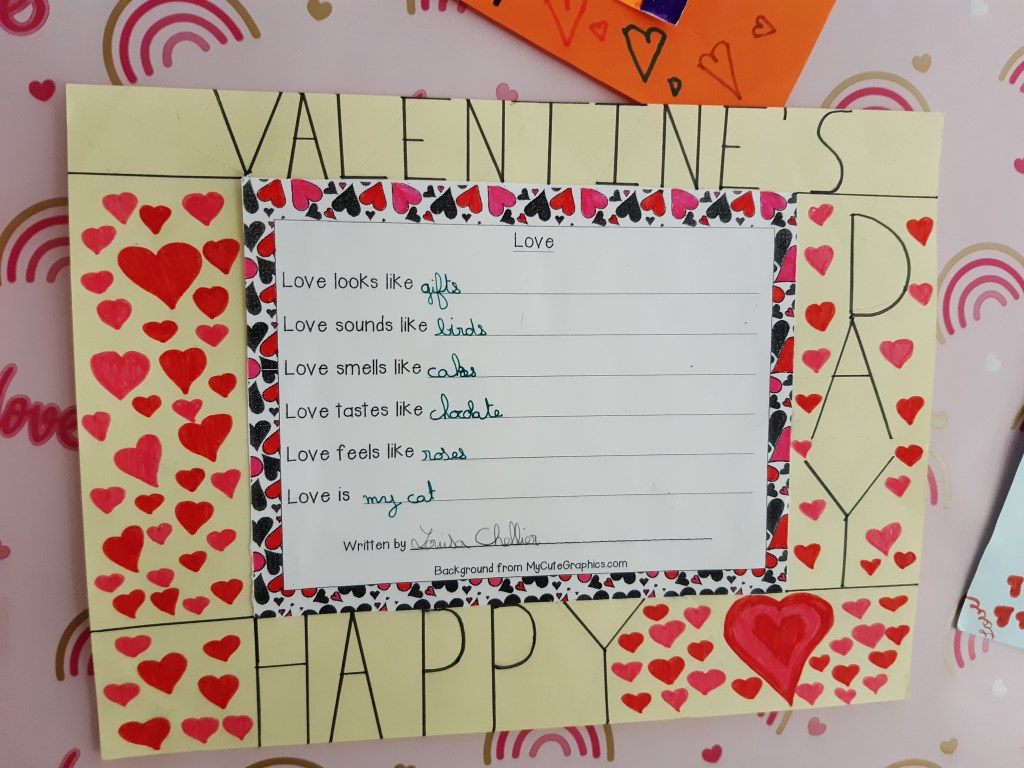 VALENTINE'S
DAY
HAPPY
Love
Love looks like gifts
Love sounds like birds
Love smells like cakes
Love tastes like chocolate
Love feels like roses
Love is my cat
Written by
Background from MyCuteGraphics.com
love